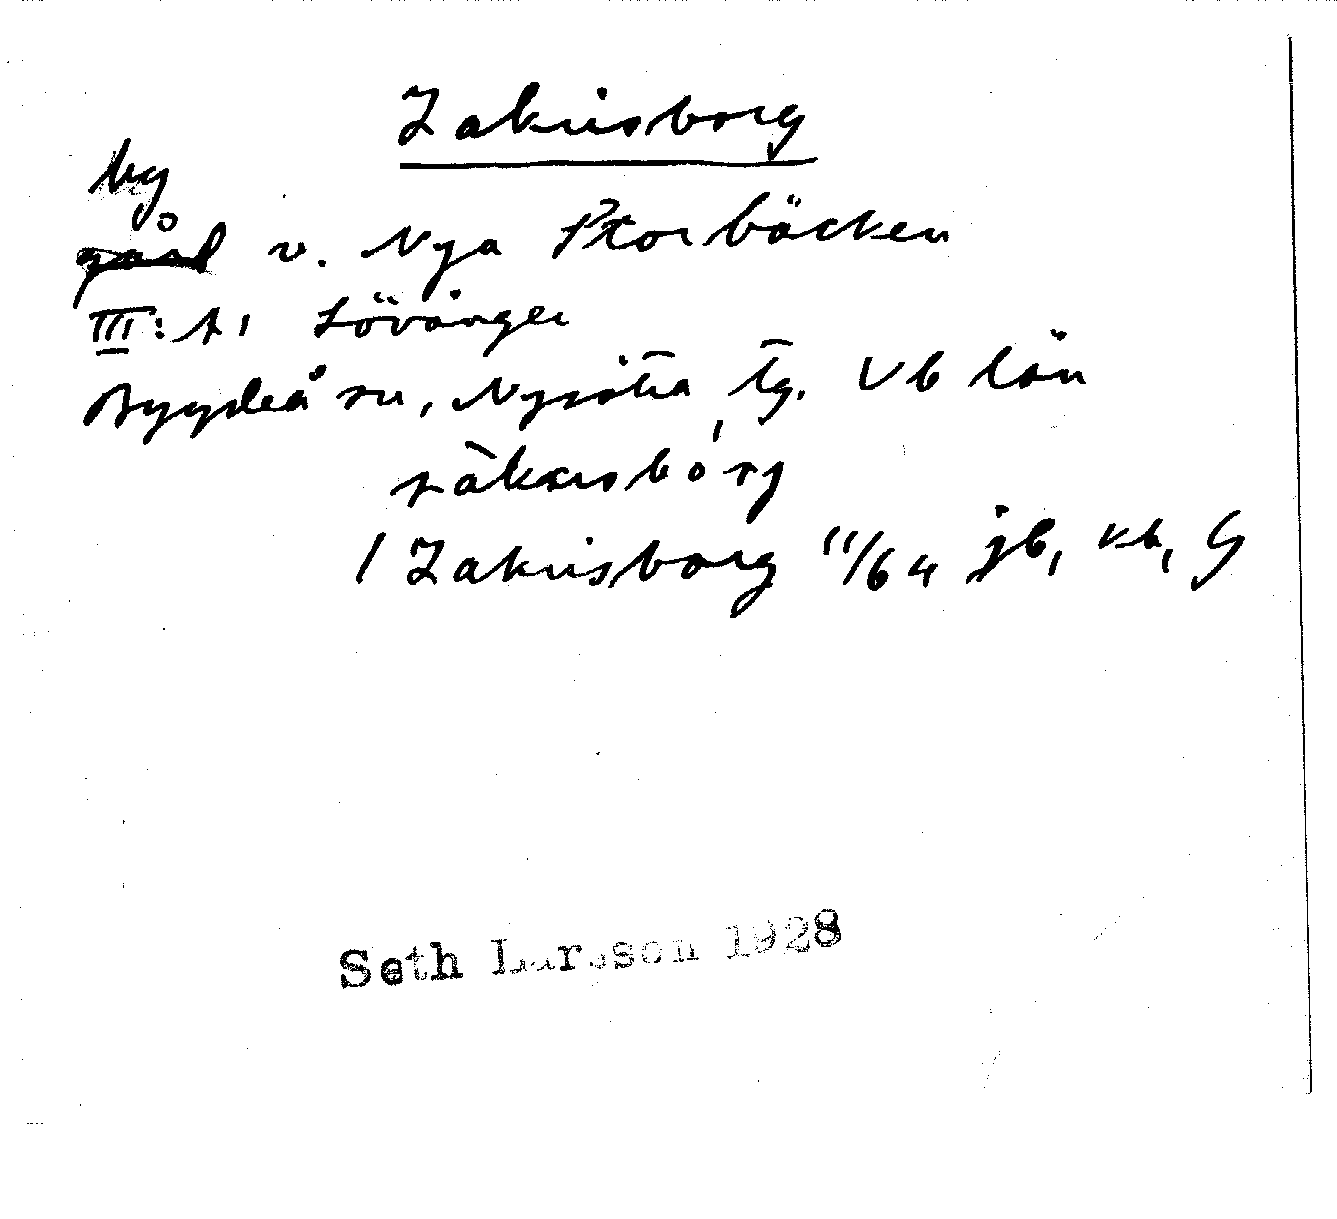 Zakrisborg
by
gård v. Nya Storbäcken
III:A1 Lövånger
Bygdeå sn, Nysätra tg. Vb län
sákrisbórg
/ Zakrisborg 11/64 jb, kb, G
Seth Larsson 1928